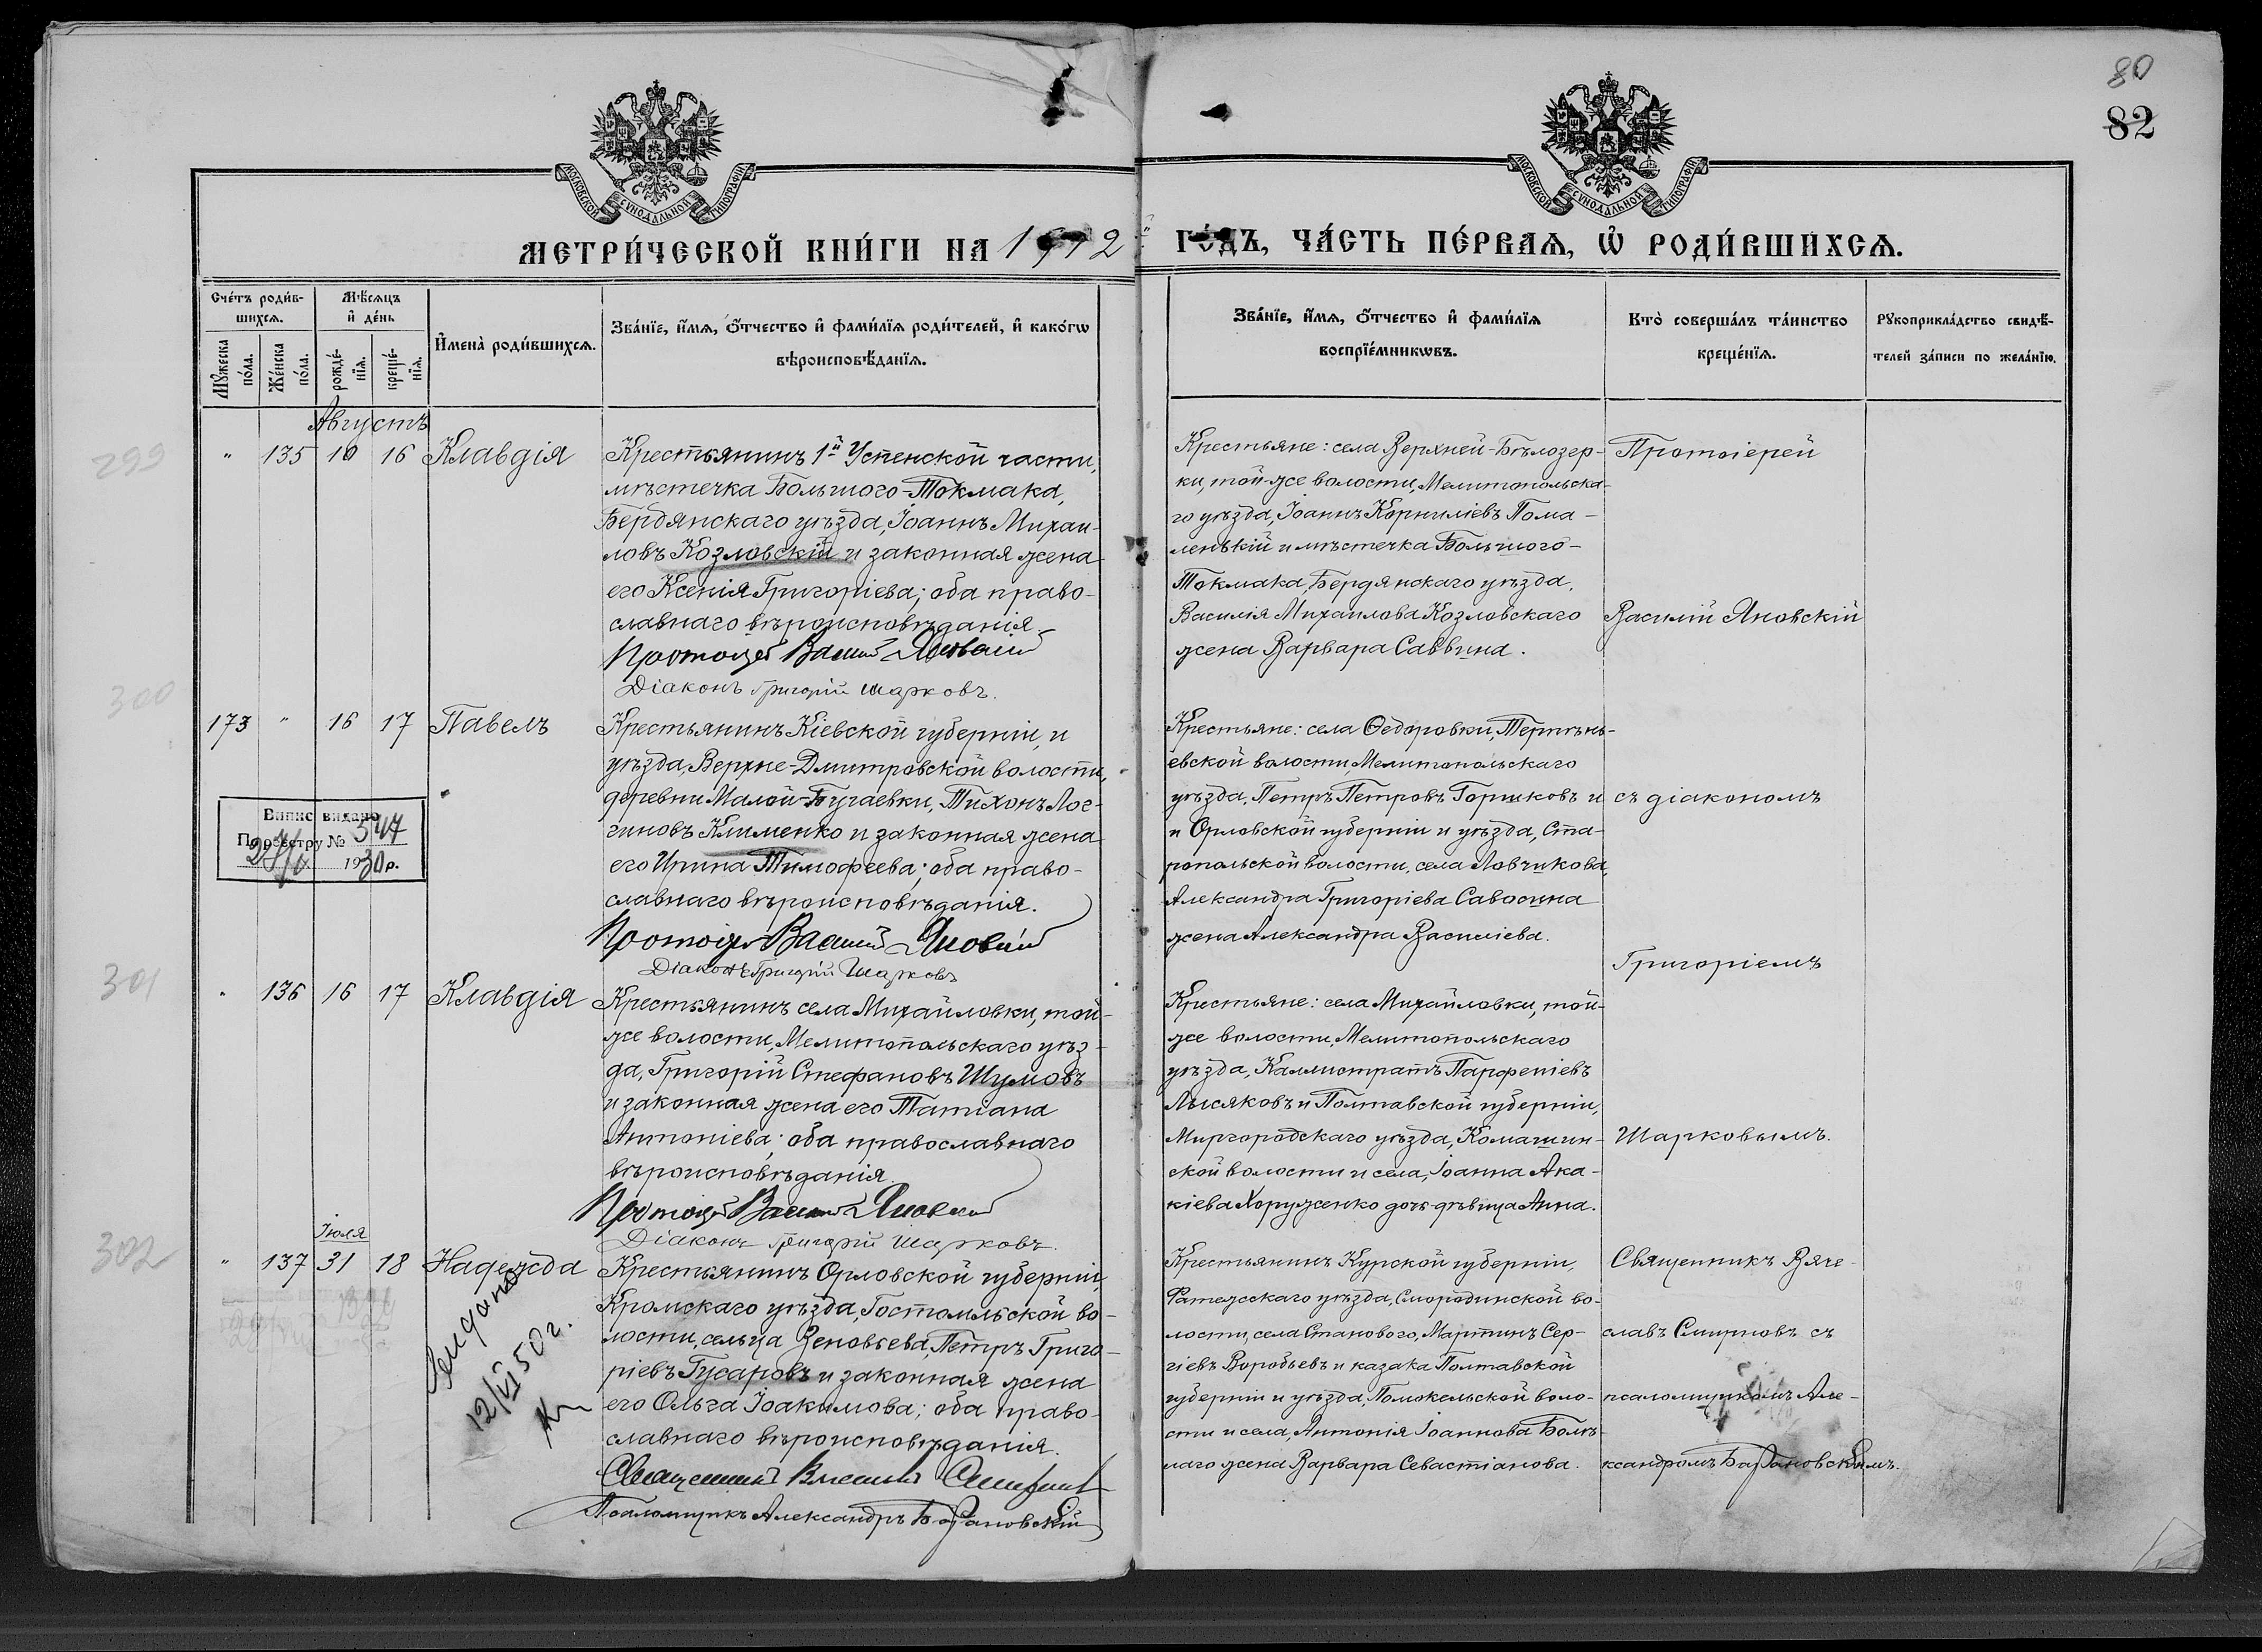 80
82
МОСКОВСКОЙ СУНОДАЛЬНОЙ ТИПОГРАФІИ
МОСКОВСКОЙ СУНОДАЛЬНОЙ ТИПОГРАФІИ
МЕТРИ́ЧЕСКОЙ КНИ́ГИ НА 1912 й ГО́ДЪ, ЧА́СТЬ ПЕ́РВАѦ, Ѡ҆ РОДИ́ВШИХСѦ.
Сче́тъ роди́в-
шихсѧ.
Мꙋ́жеска по́ла.
Же́нска по́ла.
Мѣ́сѧцъ
и҆ де́нь
рожде́-
нїѧ.
креще́-
нїѧ.
И҆мена̀ роди́вшихсѧ.
Зва́нїе, и҆́мѧ, ѻ҆́тчество и҆ фами́лїѧ роди́телей, и҆ како́гѡ
вѣроисповѣ́данїѧ.
Зва́нїе, и҆́мѧ, ѻ҆́тчество и҆ фами́лїѧ
воспрїе́мникѡвъ.
Кто̀ соверша́лъ та́инство
креще́нїѧ.
Рꙋкоприкла́дство свидѣ́-
телей за́писи по жела́нїю.
Августъ
299
" 135 10 16 Клавдія
Крестьянинъ 1й Успенской части,
мѣстечка Большого-Токмака,
Бердянскаго уѣзда, Іоаннъ Михаи-
ловъ Козловскій и законная жена
его Ксенія Григоріева; оба право-
славнаго вѣроисповѣданія.
Протоіерей Василій Яновскій
Діаконъ Григорій Шарковъ.
Крестьяне: села Верхней-Бѣлозер-
ки, той-же волости, Мелитопольска-
го уѣзда, Іоаннъ Корниліевъ Пома-
ленькій и мѣстечка Большого-
Токмака, Бердянскаго уѣзда,
Василія Михаилова Козловскаго
жена Варвара Саввина.
Протоіерей
Василій Яновскій
300
173 " 16 17 Павелъ
Крестьянинъ Кіевской губерніи, и
уѣзда, Верхне-Дмитровской волости,
деревни Малой-Бугаевки, Тихонъ Лог-
гиновъ Клименко и законная жена
его Ирина Тимофеева; оба право-
славнаго вѣроисповѣданія.
Протоіерей Василій Яновскій
Діаконъ Григорій Шарковъ
Випис видано
По реєстру № 547
1930 р.
Крестьяне: села Ѳедоровки, Терпѣнь-
евской волости, Мелитопольскаго
уѣзда, Петръ Петровъ Горшковъ и
и Орловской губерніи и уѣзда, Ста-
ропольской волости, села Ловчикова,
Александра Григоріева Савосина
жена Александра Василіева.
съ діакономъ
Григоріемъ
301
" 136 16 17 Клавдія
Крестьянинъ села Михайловки, той-
же волости, Мелитопольскаго уѣз-
да, Григорій Стефановъ Шумовъ
и законная жена его Татіана
Антоніева; оба православнаго
вѣроисповѣданія.
Протоіерей Василій Яновскій
Діаконъ Григорій Шарковъ.
Крестьяне: села Михайловки, той-
же волости, Мелитопольскаго
уѣзда, Каллистратъ Парфеніевъ
Лысяковъ и Полтавской губерніи,
Миргородскаго уѣзда, Комашин-
ской волости и села, Іоанна Ака-
кіева Хоруженко дочь-дѣвица Анна.
Шарковымъ.
302
Іюля
" 137 31 18 Надежда
Крестьянинъ Орловской губерніи,
Кромскаго уѣзда, Гостомльской во-
лости, сельца Зеновьева, Петръ Григо-
ріевъ Гусаровъ и законная жена
его Ольга Іоакимова; оба право-
славнаго вѣроисповѣданія.
Священникъ Смирновъ
Псаломщикъ Александръ Барановскій
12/VI 50 г.
Крестьянинъ Курской губерніи,
Фатежскаго уѣзда, Смородинской во-
лости, села Станового, Мартинъ Сер-
гіевъ Воробьевъ и казака Полтавской
губерніи и уѣзда, воло-
сти и села, Антонія Іоаннова
жена Варвара Севастіанова.
Священникъ Вяче-
славъ Смирновъ съ
псаломщикомъ Але-
ксандромъ Барановскимъ.